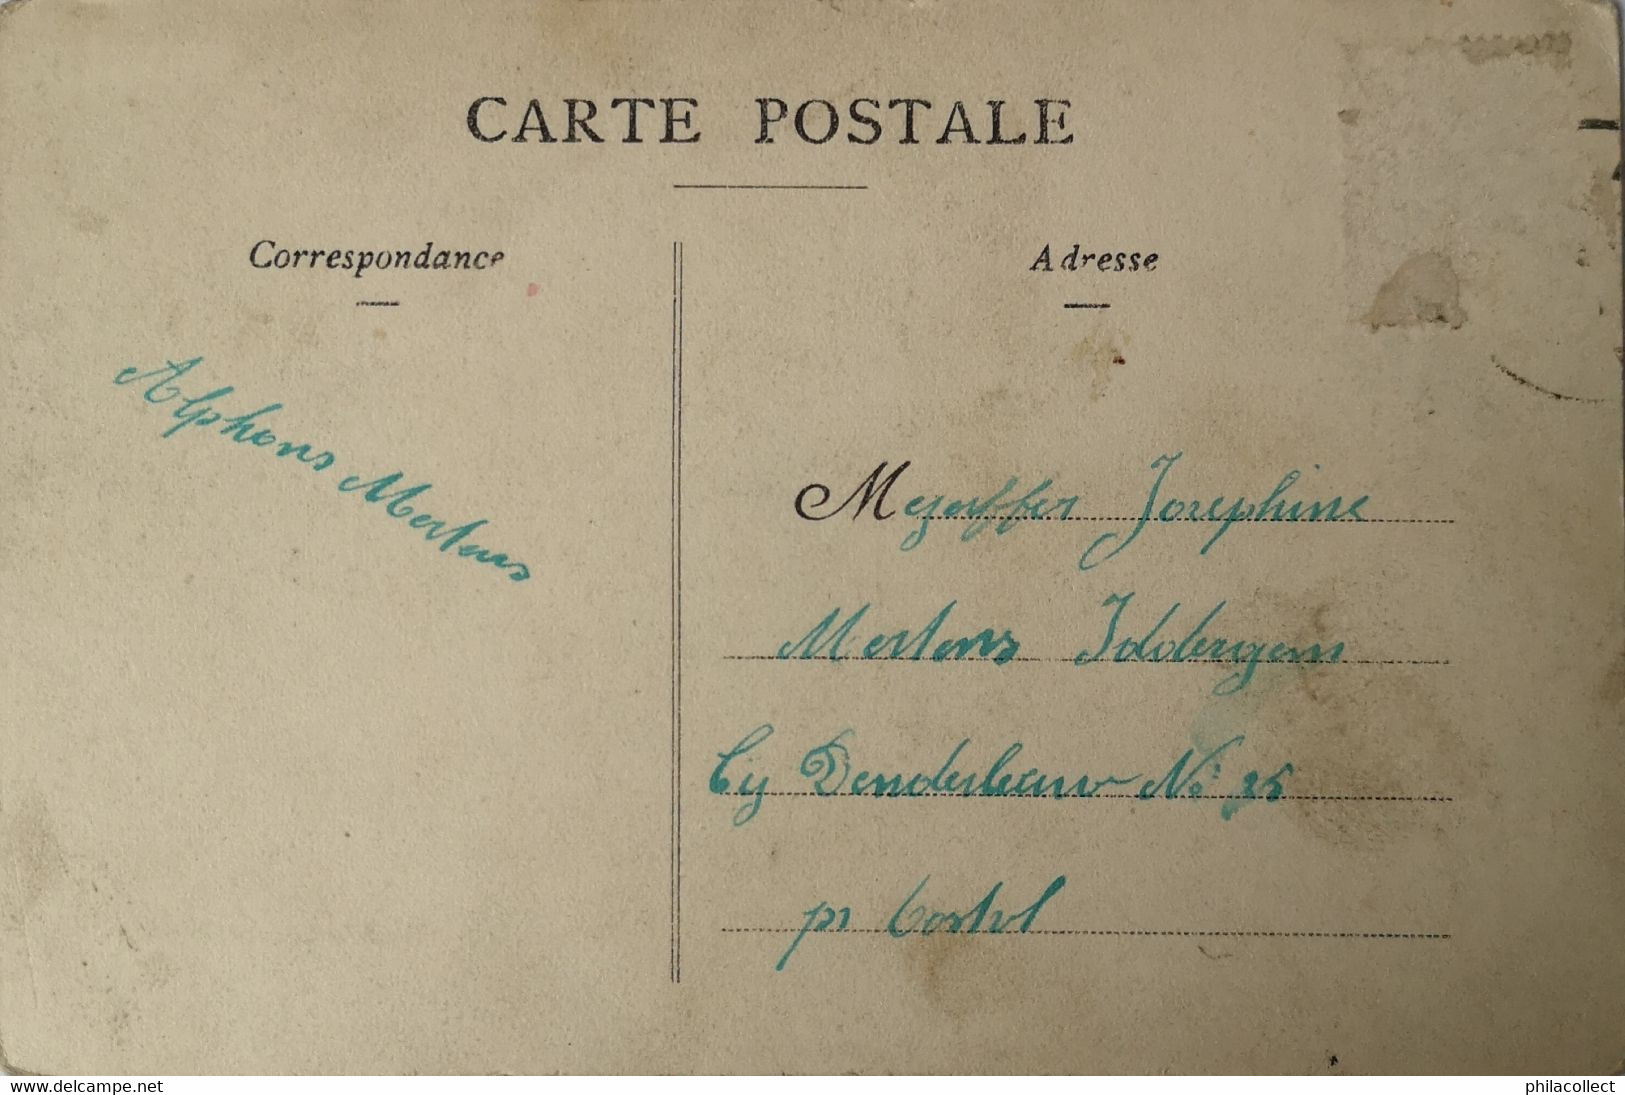 CARTE POSTALE
Correspondance
Adresse
Alphons Mertens
Mejuffer Josephine
Mertens Iddergem
bij Denderleeuw No 35
pr Costel
delcampe.net
philacollect